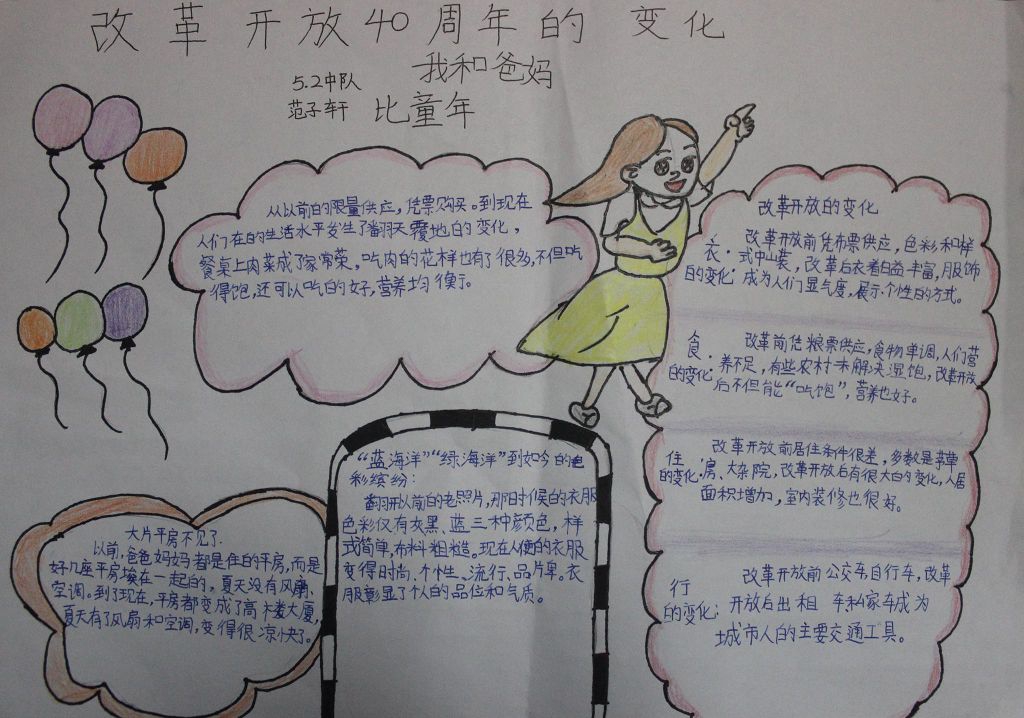 改革开放40周年的变化
我和爸妈
比童年
5.2中队
范子轩
从以前的限量供应，凭票购买。到现在
人们在的生活水平发生了翻天覆地的变化，
餐桌上肉菜成了家常荣，吃肉的花样也有了很多，不但吃
得饱，还可以吃的好，营养均衡。
改革开放的变化
衣
的变化：
改革开放前凭布票供应，色彩和样
式中山装，改革后衣着日益丰富，服饰
成为人们显气度，展示个性的方式。
食
的变化：
改革前凭粮票供应，食物单调，人们营
养不足，有些农村未解决温饱，改革开放
后不但能“吃饱”，营养也好。
住
的变化：
改革开放前居住条件很差，多数是草
房、大杂院，改革开放后有很大的变化，人居
面积增加，室内装修也很好。
行
的变化：
改革开放前公交车自行车，改革
开放后出租 车私家车成为
城市人的主要交通工具。
“蓝海洋”“绿海洋”到如今的色
彩缤纷：
翻开从前的老照片，那时候的衣服
色彩仅有灰黑、蓝三种颜色，样
式简单，布料粗糙。现在人便的衣服
变得时尚、个性、流行、品片卑。衣
服彰显了个人的品位和气质。
大片平房不见了.
以前，爸爸妈妈都是住的平房，而是
好几座平房挨在一起的，夏天没有风扇、
空调。到了现在，平房都变成了高楼大厦，
夏天有了风扇和空调，变得很凉快了。